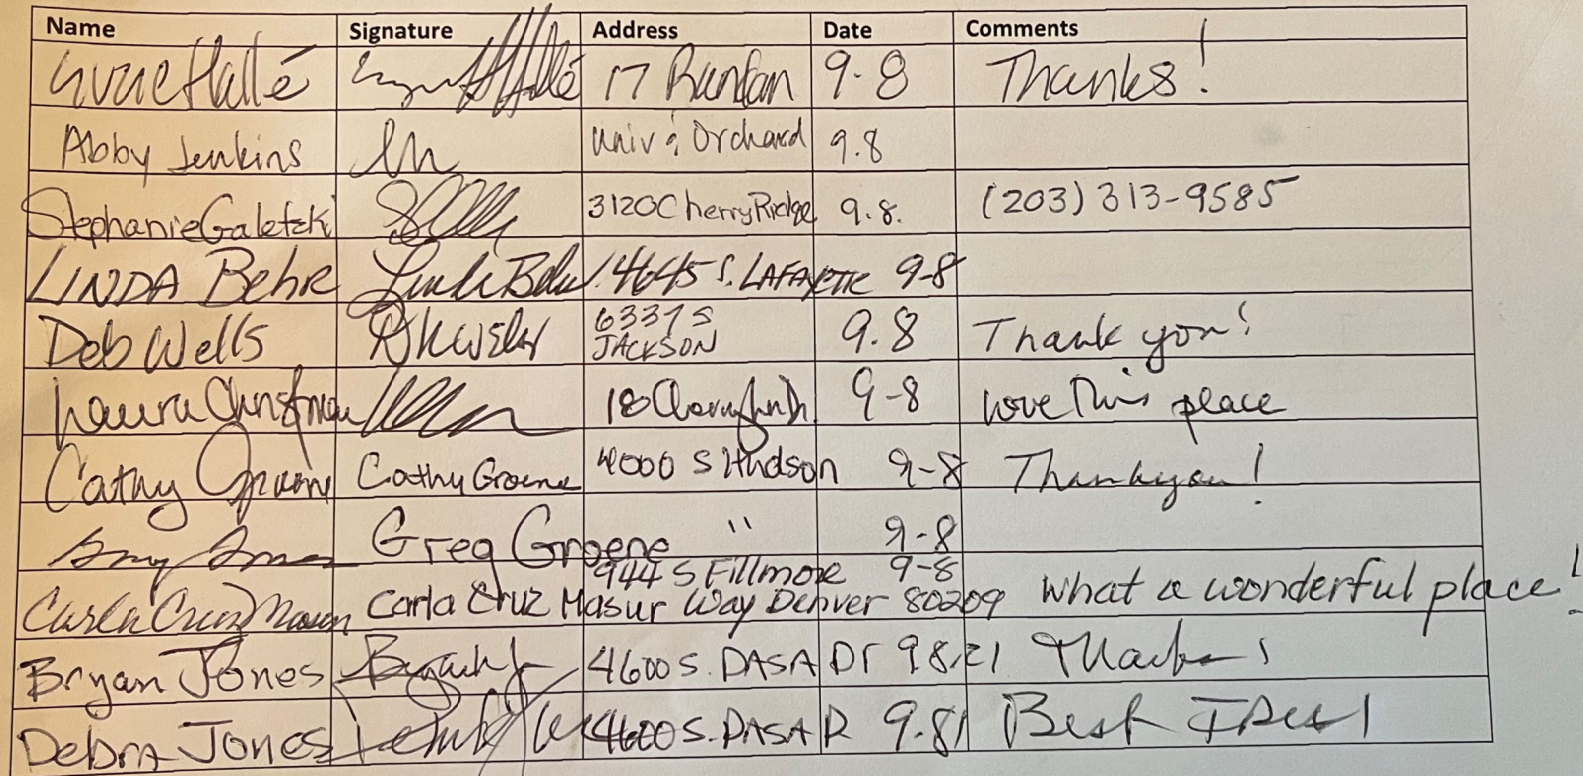 Name Signature Address Date Comments
Hallé Hallé 17 Random 9-8 Thanks!
Abby Jenkins Univ & Orchard 9.8
Stephanie Galetzki 3120 Cherry Ridge 9.8. (203) 313-9585
LINDA Behre 4645 S. LAFAYETTE 9-8
Deb Wells 6337 S JACKSON 9.8 Thank you!
Laura 18 9-8 Love This place
Cathy Groene Cathy Groene 4000 S Hudson 9-8 Thank you!
Greg Groene " 9-8
944 S Fillmore 9-8
Carla Cruz Masur Carla Cruz Masur Way Denver 80209 What a wonderful place!
Bryan Jones 4600 S. DASA Dr 9.8.21 Thanks!
Debra Jones 4600 S. DASA R 9.8 Best